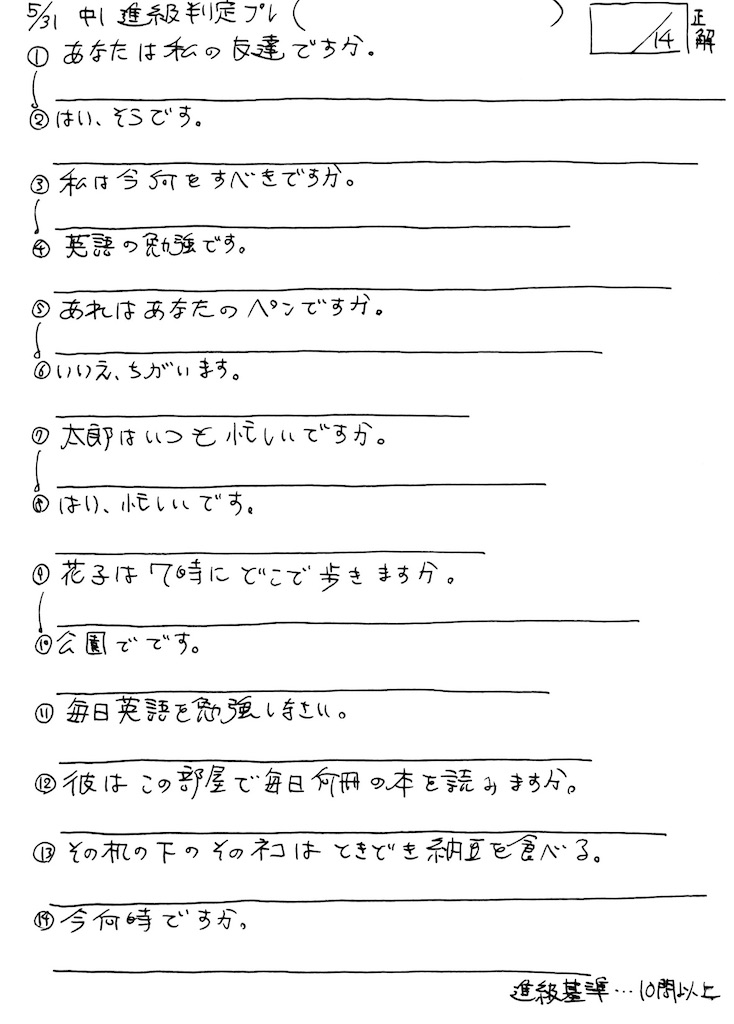 5/31 中1 進級判定プレ(　　　　　) /14 正解
① あなたは私の友達ですか。
② はい、そうです。
③ 私は今何をすべきですか。
④ 英語の勉強です。
⑤ あれはあなたのペンですか。
⑥ いいえ、ちがいます。
⑦ 太郎はいつも忙しいですか。
⑧ はい、忙しいです。
⑨ 花子は7時にどこで歩きますか。
⑩ 公園でです。
⑪ 毎日英語を勉強しなさい。
⑫ 彼はこの部屋で毎日何冊の本を読みますか。
⑬ その机の下のそのネコはときどき納豆を食べる。
⑭ 今何時ですか。
進級基準…10問以上